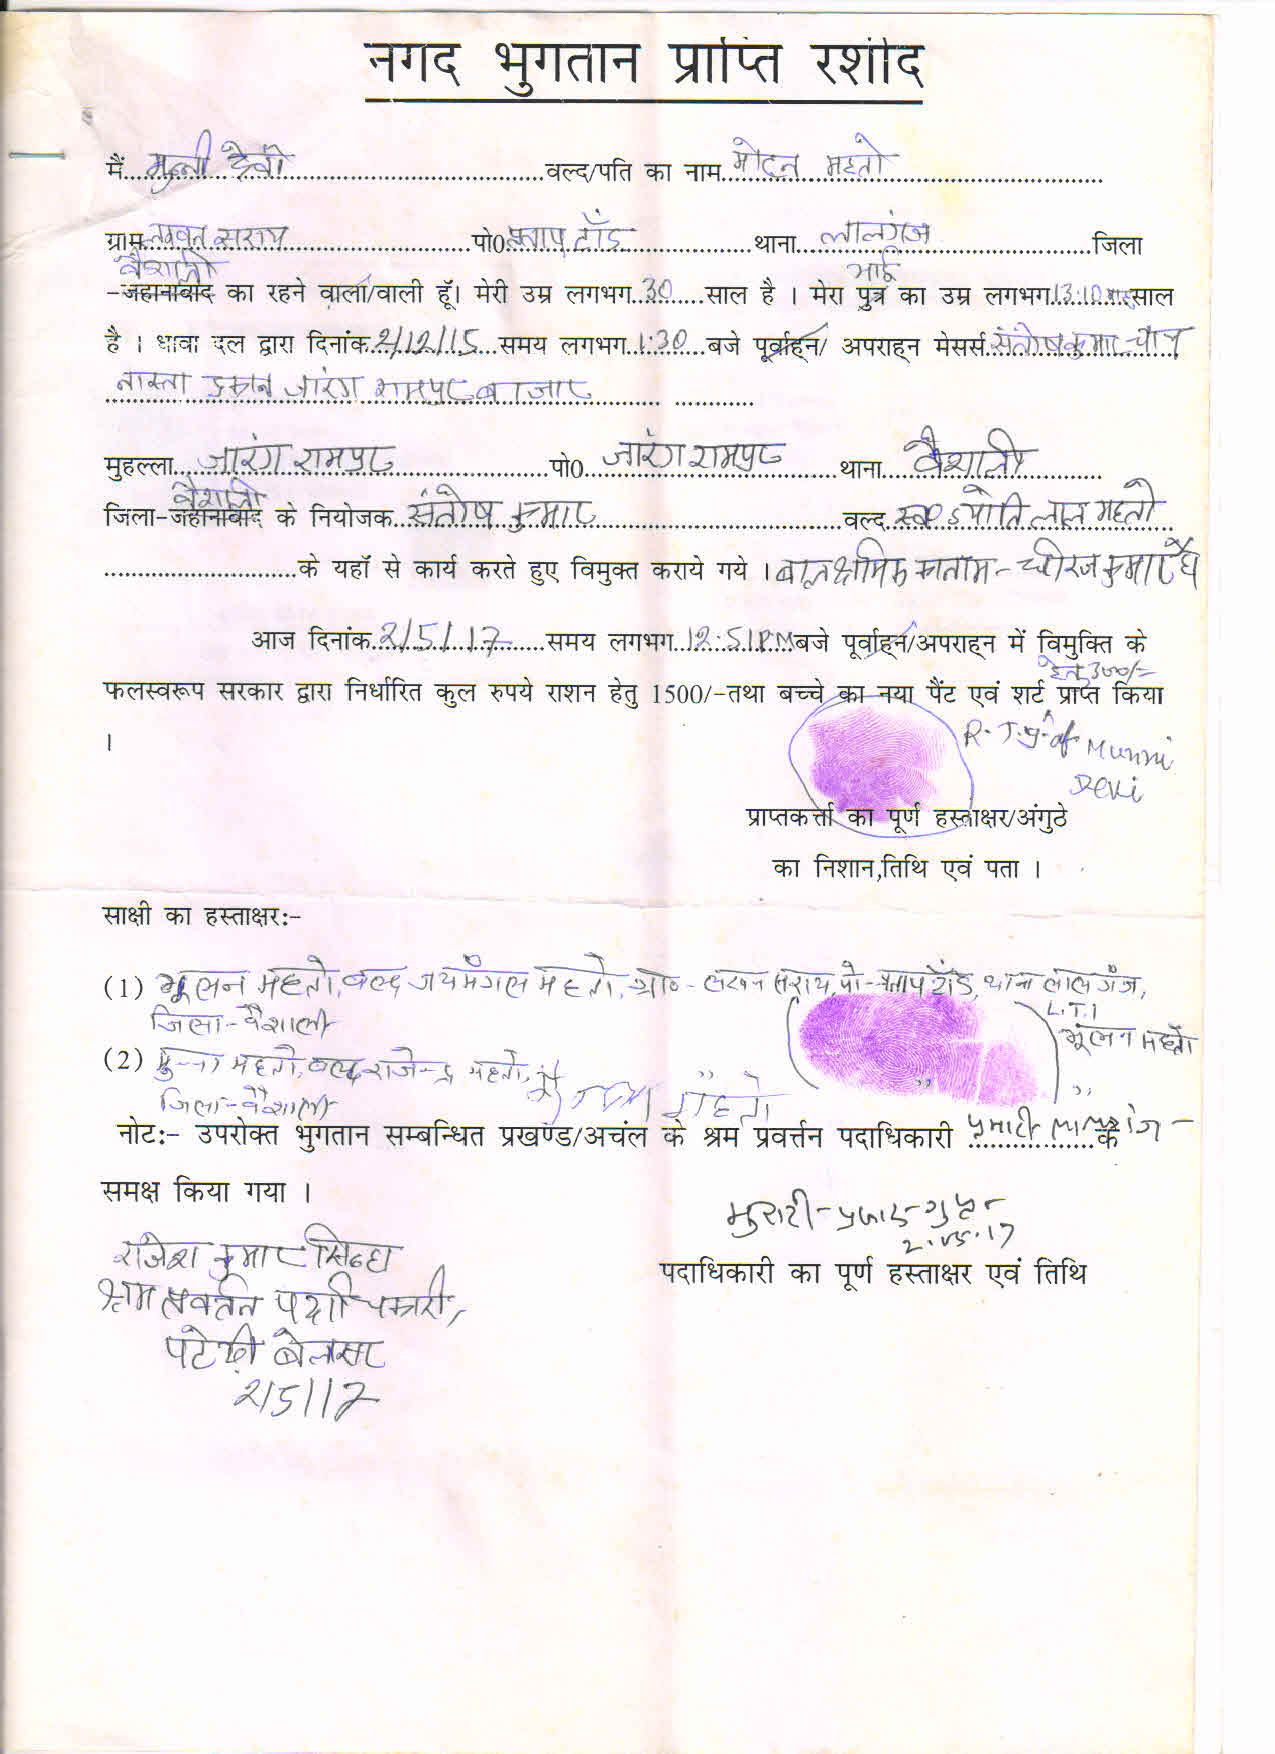 नगद भुगतान प्राप्ति रशीद
मैं मुन्नी देवी वल्द/पति का नाम मोहन महतो
ग्राम लखन सराय पो0 प्रताप टाँड थाना लालगंज जिला
वैशाली भाई
-जहानाबाद का रहने वाला/वाली हूँ। मेरी उम्र लगभग 30 साल है । मेरा पुत्र का उम्र लगभग 13:10 माह साल
है । धावा दल द्वारा दिनांक 2/12/15 समय लगभग 1:30 बजे पूर्वाह्न/ अपराह्न मेसर्स संतोष कुमार चाय
नास्ता दुकान जारंग रामपुर बाजार
मुहल्ला जारंग रामपुर पो0 जारंग रामपुर थाना वैशाली
वैशाली
जिला-जहानाबाद के नियोजक संतोष कुमार वल्द स्व0 ज्योति लाल महतो
के यहाँ से कार्य करते हुए विमुक्त कराये गये । बाल श्रमिक का नाम - धीरज कुमार है
आज दिनांक 2/5/17 समय लगभग 12:51 PM बजे पूर्वाह्न/अपराह्न में विमुक्ति के
हेतु 300/-
फलस्वरूप सरकार द्वारा निर्धारित कुल रुपये राशन हेतु 1500/-तथा बच्चे का नया पैंट एवं शर्ट प्राप्त किया
।
R. T. I. of Munni
Devi
प्राप्तकर्त्ता का पूर्ण हस्ताक्षर/अंगुठे
का निशान,तिथि एवं पता ।
साक्षी का हस्ताक्षर:-
(1) भूलन महतो, वल्द जयमंगल महतो, ग्रा0- लखन सराय, पो- प्रताप टाँड, थाना लालगंज,
जिला - वैशाली
L.T.I
भूलन महतो
(2) मुन्ना महतो, वल्द राजेन्द्र महतो, मुन्ना महतो ,, ,, ,,
जिला - वैशाली
नोट:- उपरोक्त भुगतान सम्बन्धित प्रखण्ड/अचंल के श्रम प्रवर्त्तन पदाधिकारी प्रभारी लालगंज - के
समक्ष किया गया ।
मुरारी प्रसाद गुप्त
2.05.17
पदाधिकारी का पूर्ण हस्ताक्षर एवं तिथि
राजेश कुमार सिन्हा
श्रम प्रवर्तन पदाधिकारी,
पटेढ़ी बेलसर
2/5/17